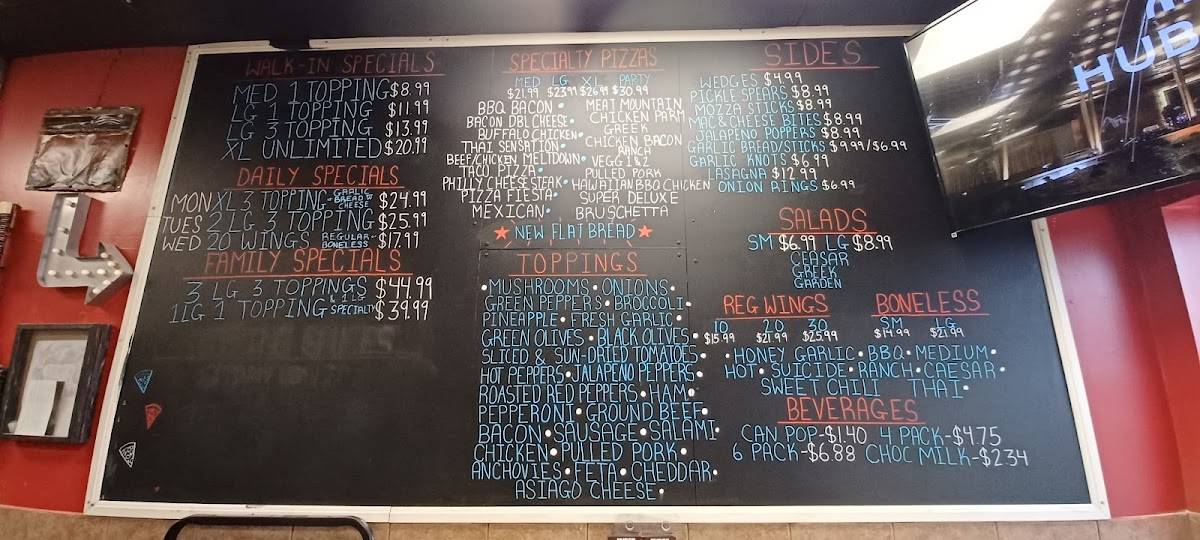 WALK-IN SPECIALS
MED 1 TOPPING $8.99
LG 1 TOPPING $11.99
LG 3 TOPPING $13.99
XL UNLIMITED $20.99
DAILY SPECIALS
MON XL 3 TOPPING GARLIC BREAD W CHEESE $24.99
TUES 2 LG 3 TOPPING $25.99
WED 20 WINGS REGULAR BONELESS $17.99
FAMILY SPECIALS
3 LG 3 TOPPINGS $44.99
1 LG 1 TOPPING & 1 LG SPECIALTY $39.99
SPECIALTY PIZZAS
MED LG XL PARTY
$21.99 $23.99 $26.99 $30.99
BBQ BACON • MEAT MOUNTAIN
BACON DBL CHEESE • CHICKEN PARM
BUFFALO CHICKEN • GREEK
THAI SENSATION • CHICKEN BACON RANCH
BEEF/CHICKEN MELTDOWN • VEGG 1 & 2
TACO PIZZA • PULLED PORK
PHILLY CHEESESTEAK • HAWAIIAN BBQ CHICKEN
PIZZA FIESTA • SUPER DELUXE
MEXICAN • BRUSCHETTA
★ NEW FLATBREAD ★
TOPPINGS
• MUSHROOMS • ONIONS •
GREEN PEPPERS • BROCCOLI •
PINEAPPLE • FRESH GARLIC •
GREEN OLIVES • BLACK OLIVES •
SLICED & SUN-DRIED TOMATOES •
HOT PEPPERS • JALAPENO PEPPERS •
ROASTED RED PEPPERS • HAM •
PEPPERONI • GROUND BEEF •
BACON • SAUSAGE • SALAMI •
CHICKEN • PULLED PORK •
ANCHOVIES • FETA • CHEDDAR •
ASIAGO CHEESE •
SIDES
WEDGES $4.99
PICKLE SPEARS $8.99
MOTZA STICKS $8.99
MAC & CHEESE BITES $8.99
JALAPENO POPPERS $8.99
GARLIC BREAD/STICKS $9.99/$6.99
GARLIC KNOTS $6.99
LASAGNA $12.99
ONION RINGS $6.99
SALADS
SM $6.99 LG $8.99
CEASAR
GREEK
GARDEN
REG WINGS
10 20 30
$15.99 $21.99 $25.99
BONELESS
SM LG
$14.99 $21.99
• HONEY GARLIC • BBQ • MEDIUM •
HOT • SUICIDE • RANCH • CAESAR •
SWEET CHILI THAI •
BEVERAGES
CAN POP-$1.40 4 PACK-$4.75
6 PACK-$6.88 CHOC MILK-$2.34
HUB